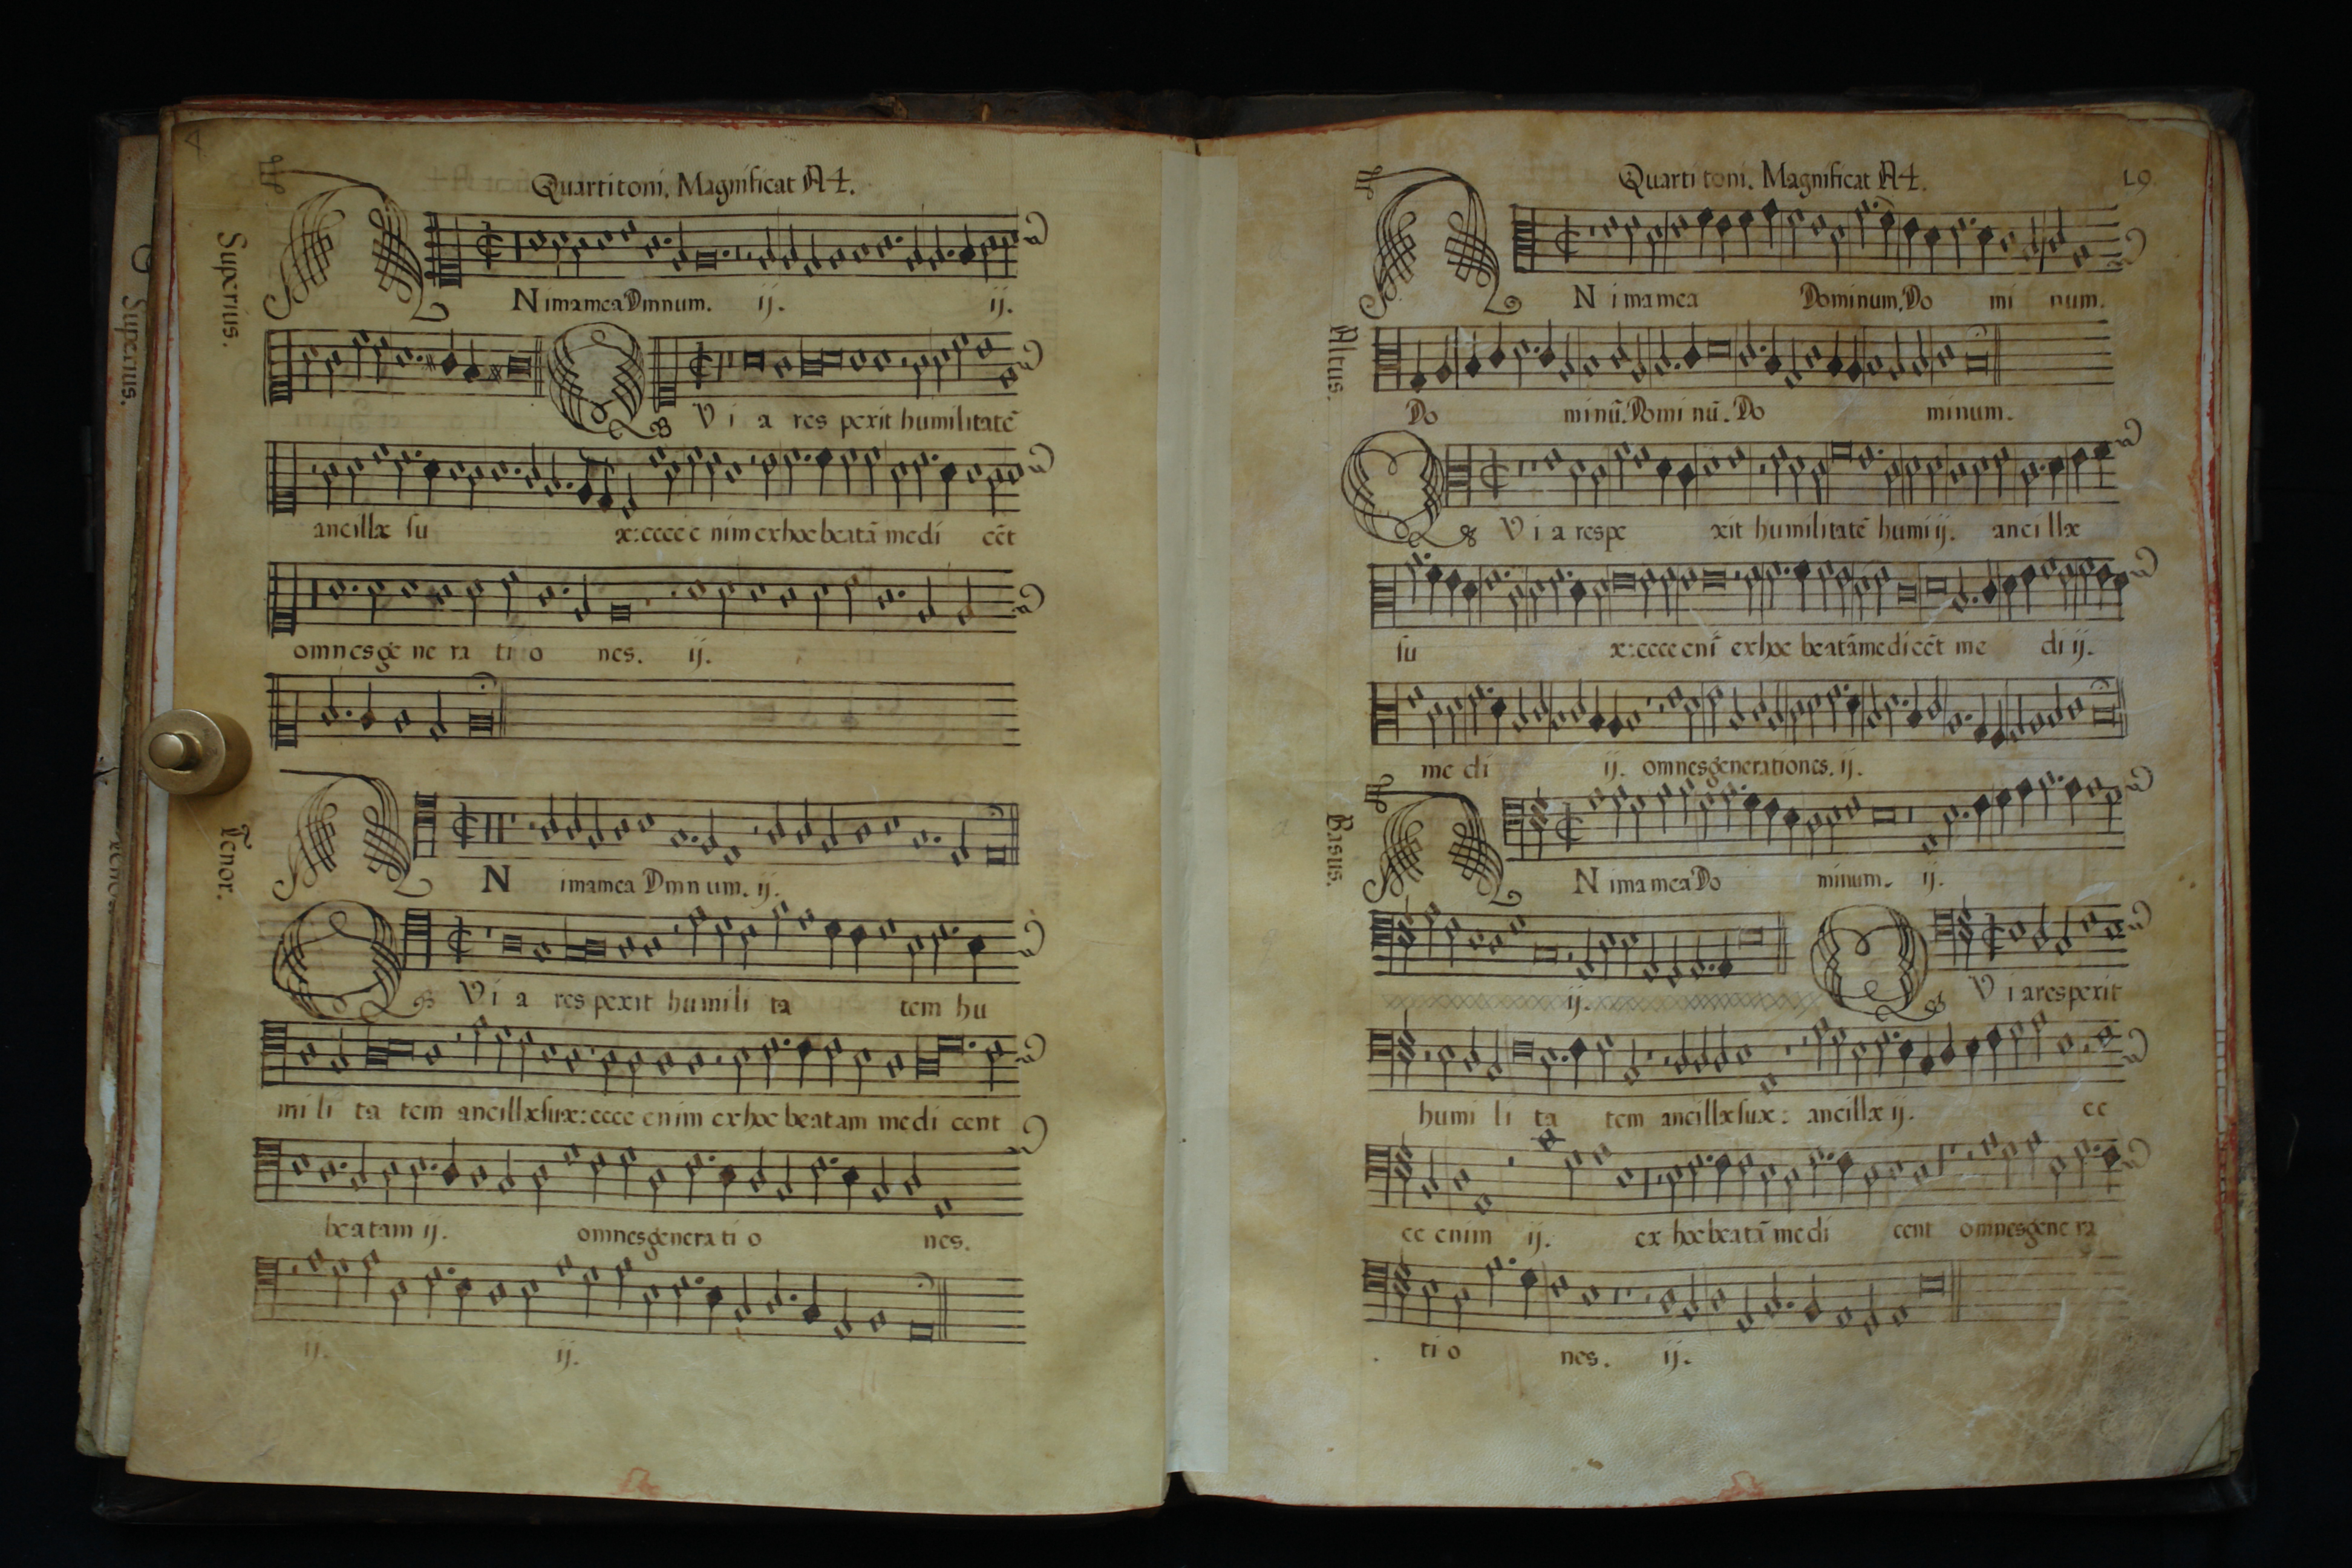 Quarti toni. Magnificat A4.
Superius.
A Nima mea Dmnum. ij. ij.
Q Via respexit humilitatẽ
ancillæ su æ: ecce enim ex hoc beatã me di cẽt
omnes ge ne ra ti o nes. ij.
Tenor.
A N ima mea Dmnum. ij.
Q Vi a res pexit humili ta tem hu
mi li ta tem ancillæ suæ: ecce enim ex hoc beatam me di cent
beatam ij. omnes genera ti o nes.
ij. ij.
Superius.
Quarti toni. Magnificat A4.
19
A N ima mea Dominum, Do mi num.
Altus.
Do minũ. Domi nũ. Do minum.
Q Vi a respe xit humilitatẽ humi ij. ancillæ
su æ: ecce enĩ ex hoc beatã medicẽt me di ij.
me di ij. omnes generationes. ij.
Basus.
A N ima mea Do minum. ij.
ij. Q Via respexit
humi li ta tem ancillæ suæ: ancillæ ij. ec
ce enim ij. ex hoc beatã me di cent omnes gene ra
ti o nes. ij.